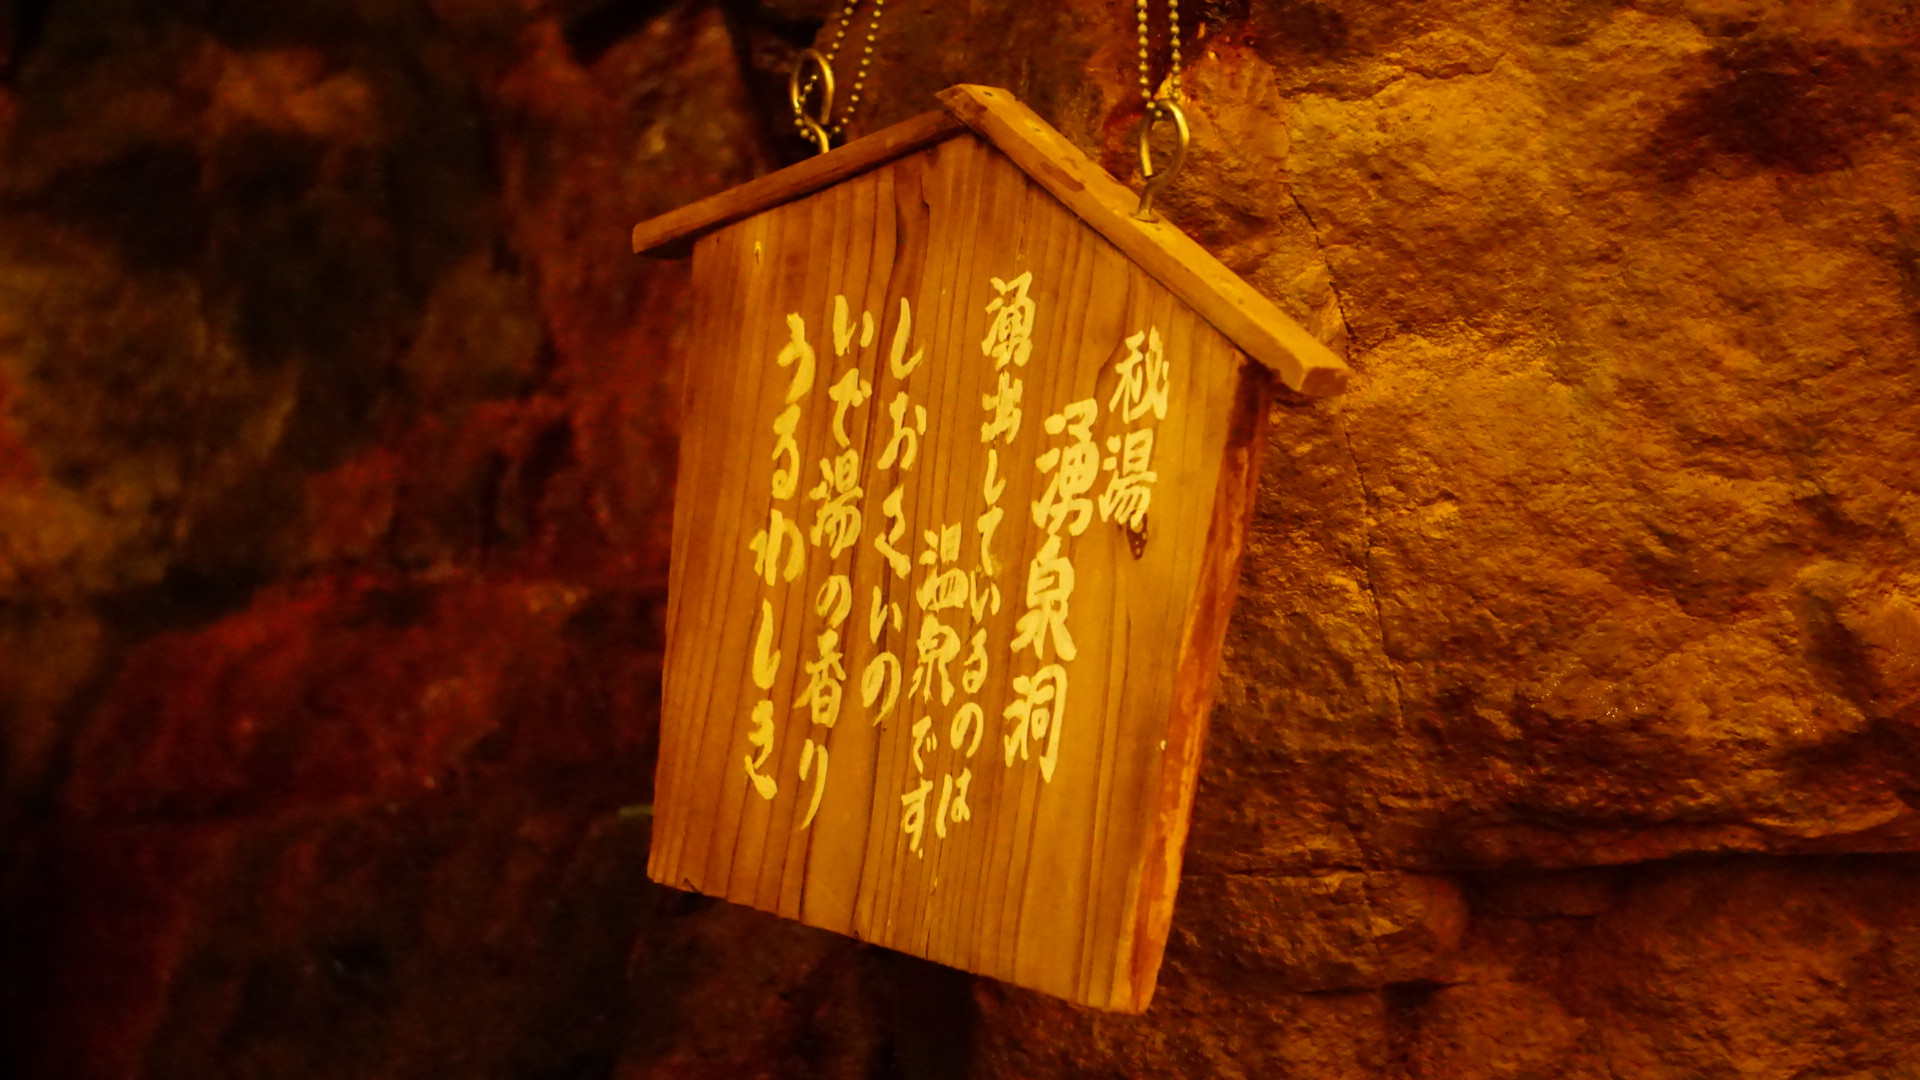 秘湯
湧泉洞
湧出しているのは
温泉です
しおさいの
いで湯の香り
うるわしき